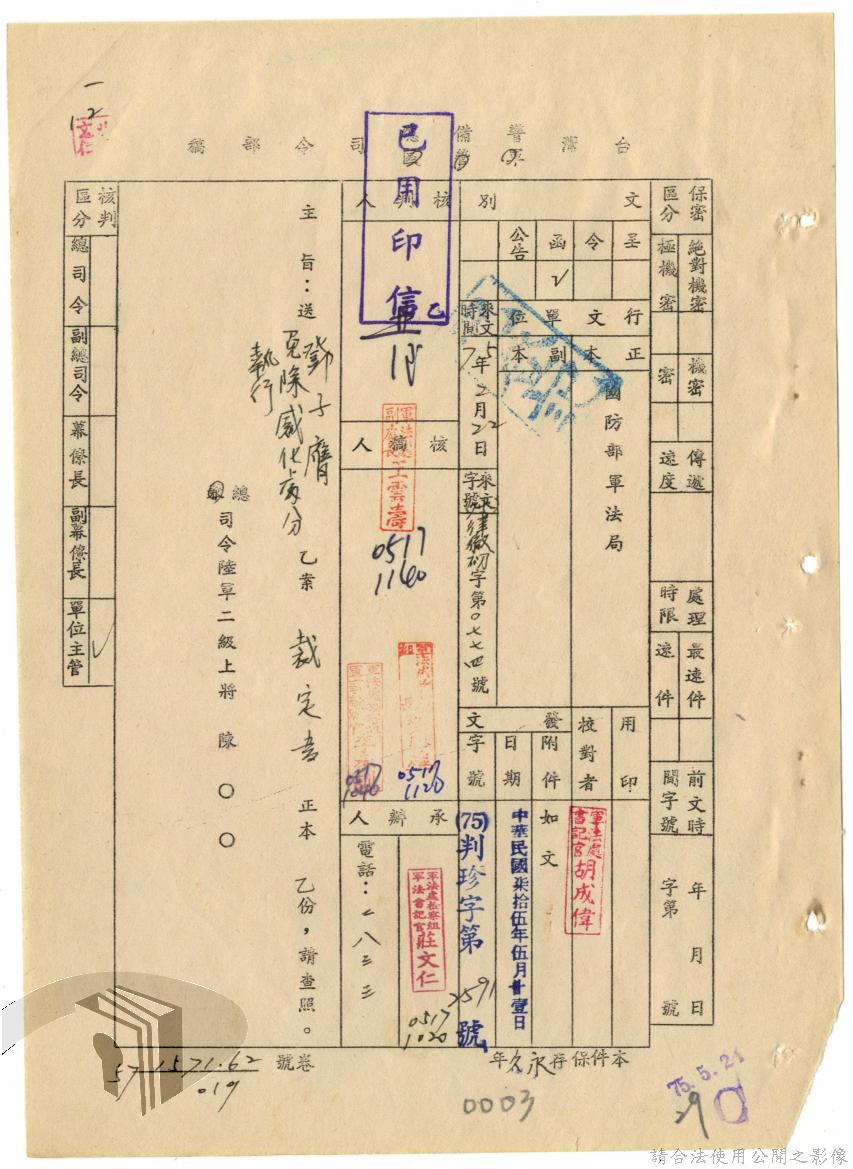 台灣警備總司令部稿
保密區分
絕對機密
極機密
機密
密
傳遞速度
處理時限
最速件
速件
前文時間字號
年月日
字第 號
文別
呈
令
函
ˇ
公告
行文單位
正本
副本
國防部軍法局
來文時間
75年2月22日
來文字號
字第0774號
用印
校對者
軍法處書記官胡成偉
發文
附件
如文
日期
中華民國柒拾伍年伍月廿壹日
字號
(75)判珍字第2591號
核判人
已用印信
乙
核稿人
軍法處副處長王雲濤
0517
1140
0517
1120
0517
承辦人
軍法處檢察組軍法書記官莊文仁
0517
1020
電話:二八三三
主旨:送鄧子膺免除感化處分執行乙案裁定書正本乙份,請查照。
總司令陸軍二級上將陳〇〇
核判區分
總司令
副總司令
幕僚長
副幕僚長
單位主管
ˇ
本件保存永久年
卷號
57 1571.62
019
0003
75.5.21
29
請合法使用公開之影像